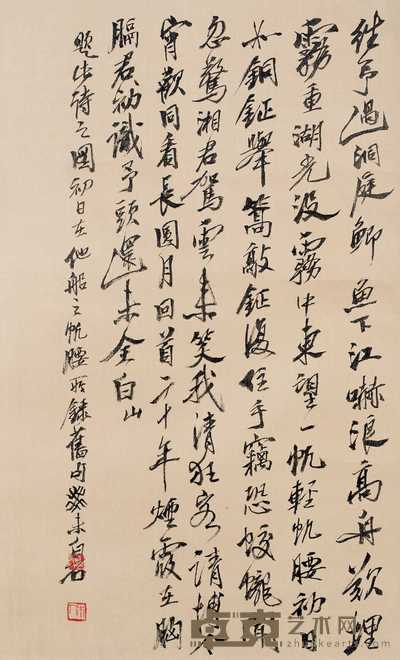 往予過洞庭鯽魚下江嚇浪高舟欲埋
霧重湖光没霧中東望一帆輕帆腰初日
如銅鉦舉篙敲鉦復住手竊恐蛟龍負
忽驚湘君駕雲來笑我清狂客請博今
宵歡同看長圓月回首二十年煙霞在胸
膈君初識予頭還未全白山
題出之圖初日在他船之帆腰錄舊句癸未白石
卓克艺术网